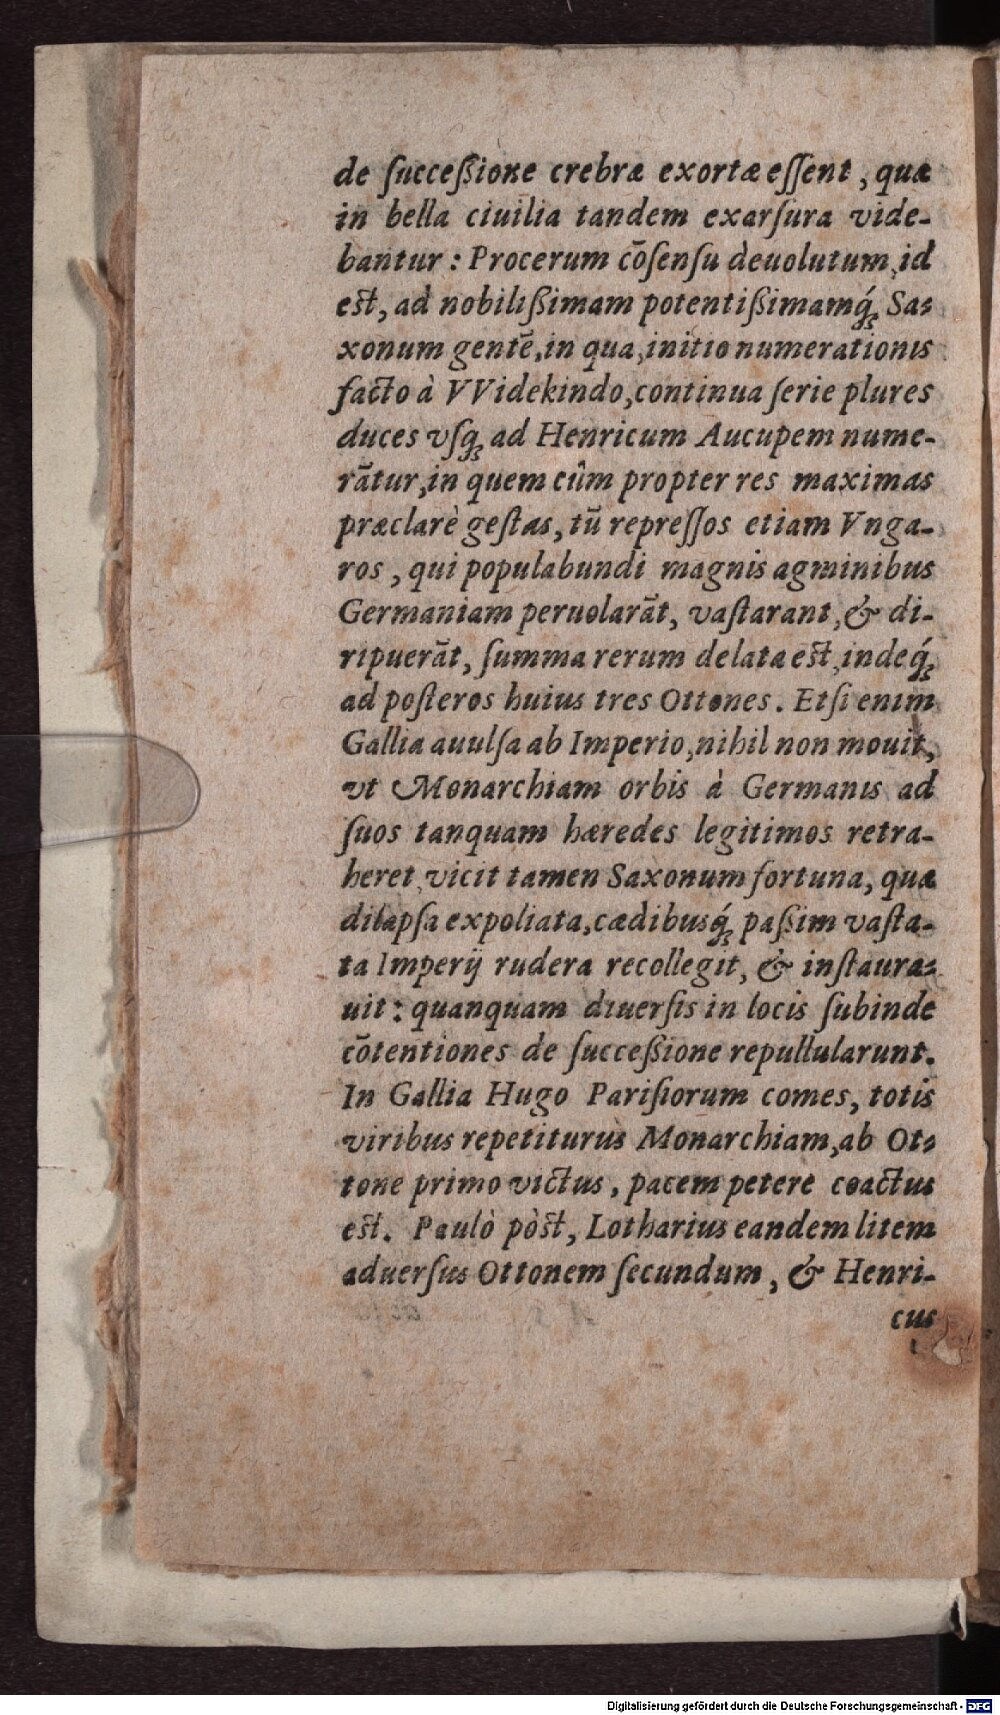 de ſucceßione crebræ exortæ eſſent, quæ
in bella ciuilia tandem exarſura vide-
bantur: Procerum cōſenſu deuolutum, id
est, ad nobilißimam potentißimamq́; Sa-
xonum gentē, in qua, initio numerationis
facto à VVidekindo, continua ſerie plures
duces vſq; ad Henricum Aucupem nume-
rātur, in quem cûm propter res maximas
præclarè geſtas, tū repreſſos etiam Vnga-
ros, qui populabundi magnis agminibus
Germaniam peruolarāt, vaſtarant, & di-
ripuerāt, ſumma rerum delata est, indeq́;
ad poſteros huius tres Ottones. Etſi enim
Gallia auulſa ab Imperio, nihil non mouit,
vt Monarchiam orbis à Germanis ad
ſuos tanquam hæredes legitimos retra-
heret, vicit tamen Saxonum fortuna, quæ
dilapſa expoliata, cædibusq́; paßim vaſta-
ta Imperij rudera recollegit, & inſtaura-
uit: quanquam diuerſis in locis ſubinde
cōtentiones de ſucceßione repullularunt.
In Gallia Hugo Pariſiorum comes, totis
viribus repetiturus Monarchiam, ab Ot-
tone primo victus, pacem petere coactus
est. Paulò pòst, Lotharius eandem litem
aduerſus Ottonem ſecundum, & Henri-
cus
Digitalisierung gefördert durch die Deutsche Forschungsgemeinschaft - DFG